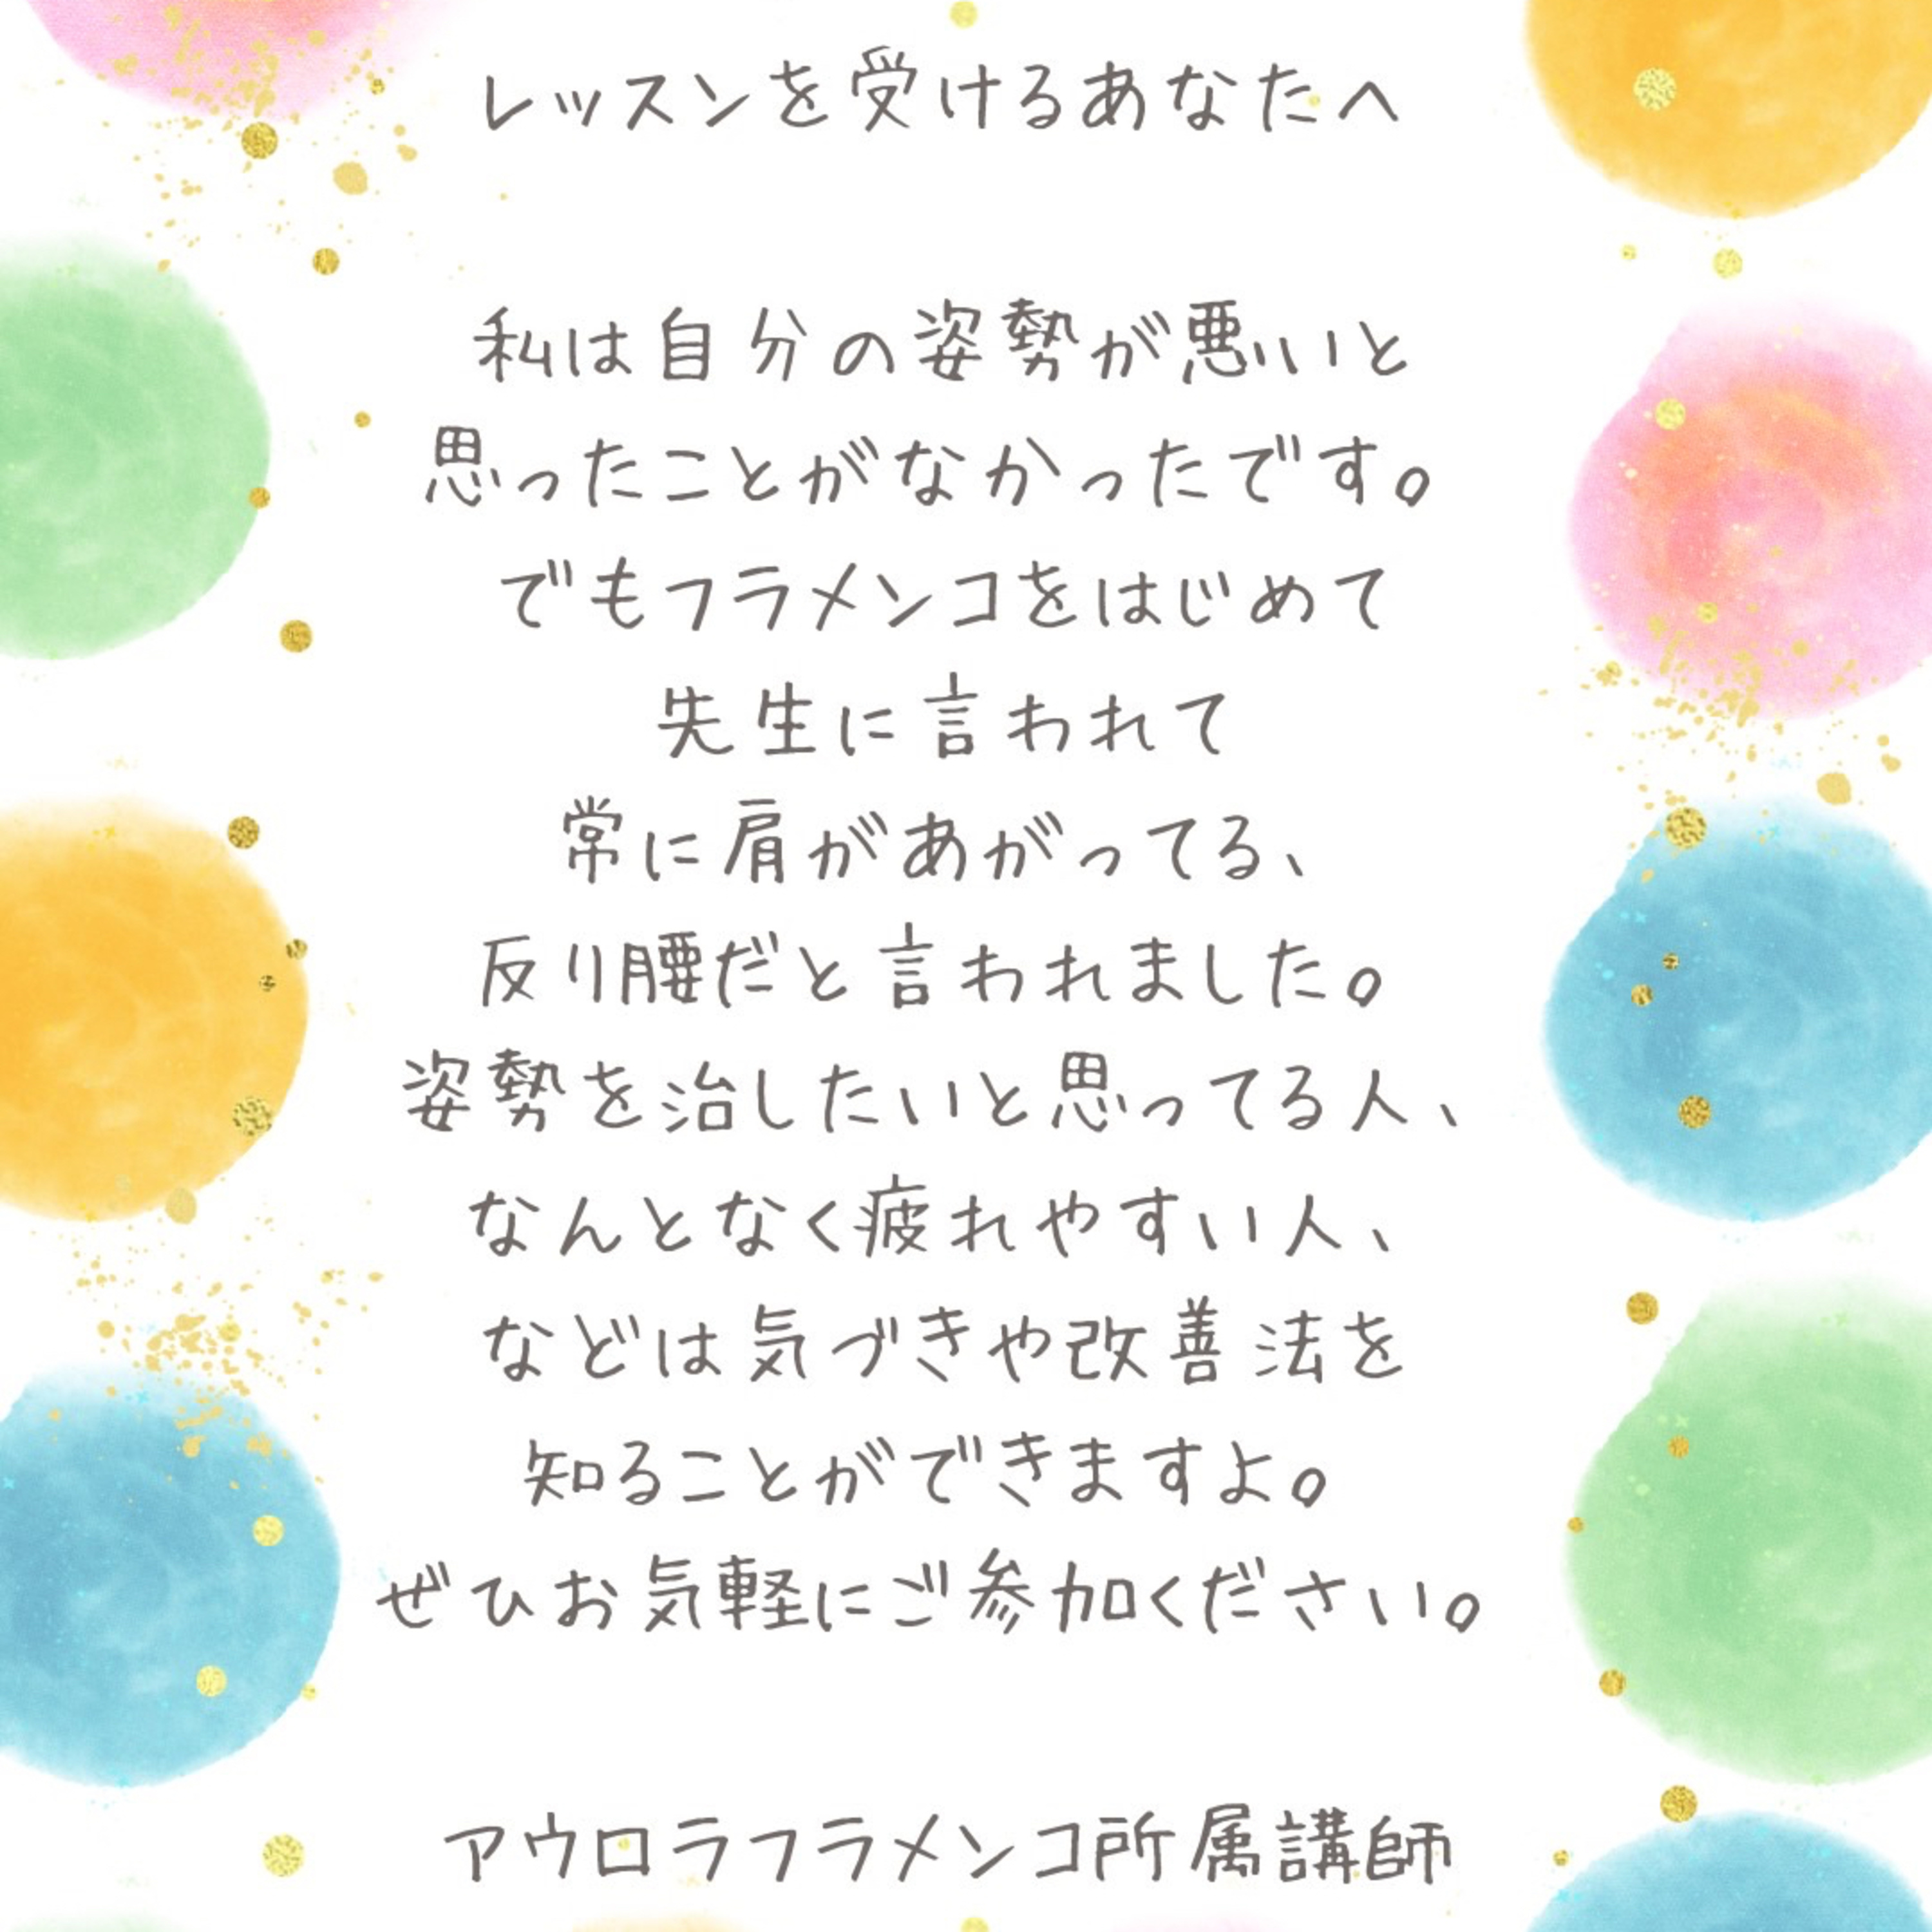 レッスンを受けるあなたへ
私は自分の姿勢が悪いと
思ったことがなかったです。
でもフラメンコをはじめて
先生に言われて
常に肩があがってる、
反り腰だと言われました。
姿勢を治したいと思ってる人、
なんとなく疲れやすい人、
などは気づきや改善法を
知ることができますよ。
ぜひお気軽にご参加ください。
アウロラフラメンコ所属講師